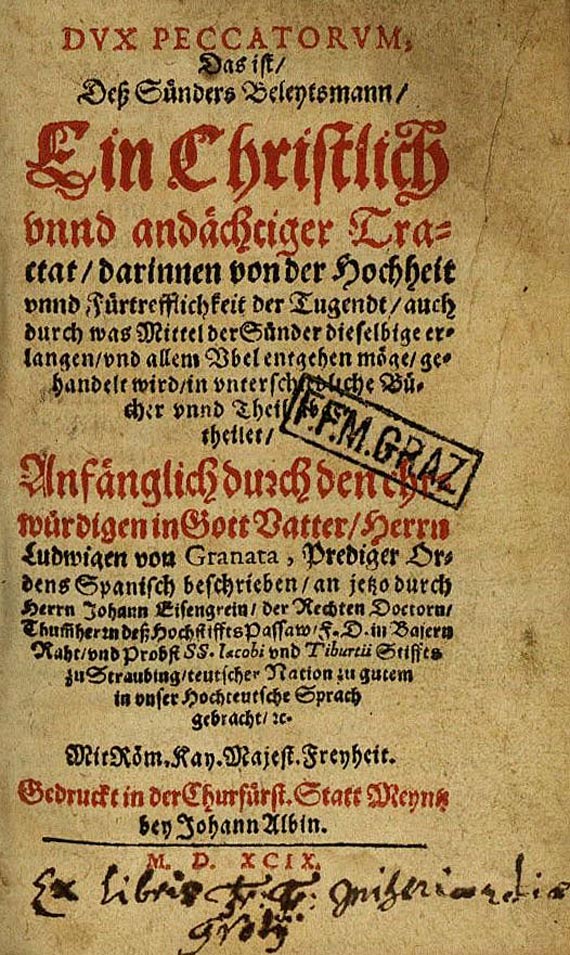 DVX PECCATORVM,
Das ist/
Deß Sünders Beleytsmann/
Ein Christlich
vnnd andächtiger Tra=
ctat/ darinnen von der Hochheit
vnnd Fürtrefflichkeit der Tugendt/ auch
durch was Mittel der Sünder dieselbige er=
langen/ vnd allem Vbel entgehen möge/ ge=
handelt wird/ in vnterschiedliche Bü=
cher vnnd Theil
theilet/
F.F.M.GRAZ
Anfänglich durch den Ehr=
würdigen in Gott Vatter/ Herrn
Ludwigen von Granata, Prediger Or=
dens Spanisch beschrieben/ an jetzo durch
Herrn Johann Eisengrein/ der Rechten Doctorn/
Thumherrn deß Hochstiffts Passaw/ F. D. in Baiern
Raht/ vnd Probst SS. Iacobi vnd Tiburtii Stiffts
zu Straubing/ teutscher Nation zu gutem
in vnser Hochteutsche Sprach
gebracht/ ꝛc.
Mit Röm. Kay. Majest. Freyheit.
Gedruckt in der Churfürst. Statt Meyntz
bey Johann Albin.
M. D. XCIX.
Ex libris Fr. Fr. Misericordia